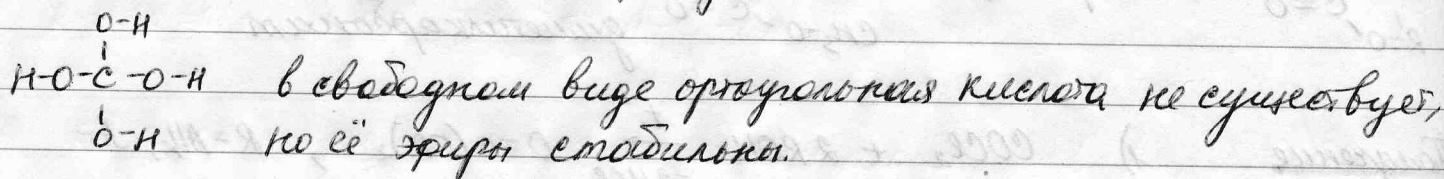 O-H
H-O-C-O-H в свободном виде ортоугольная кислота не существует,
O-H но её эфиры стабильны.